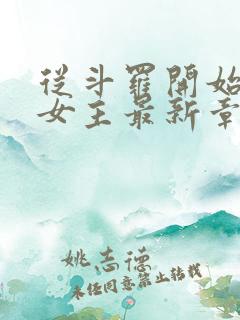 從斗羅開始
女王最新章
姚志德
未经同意禁止转载